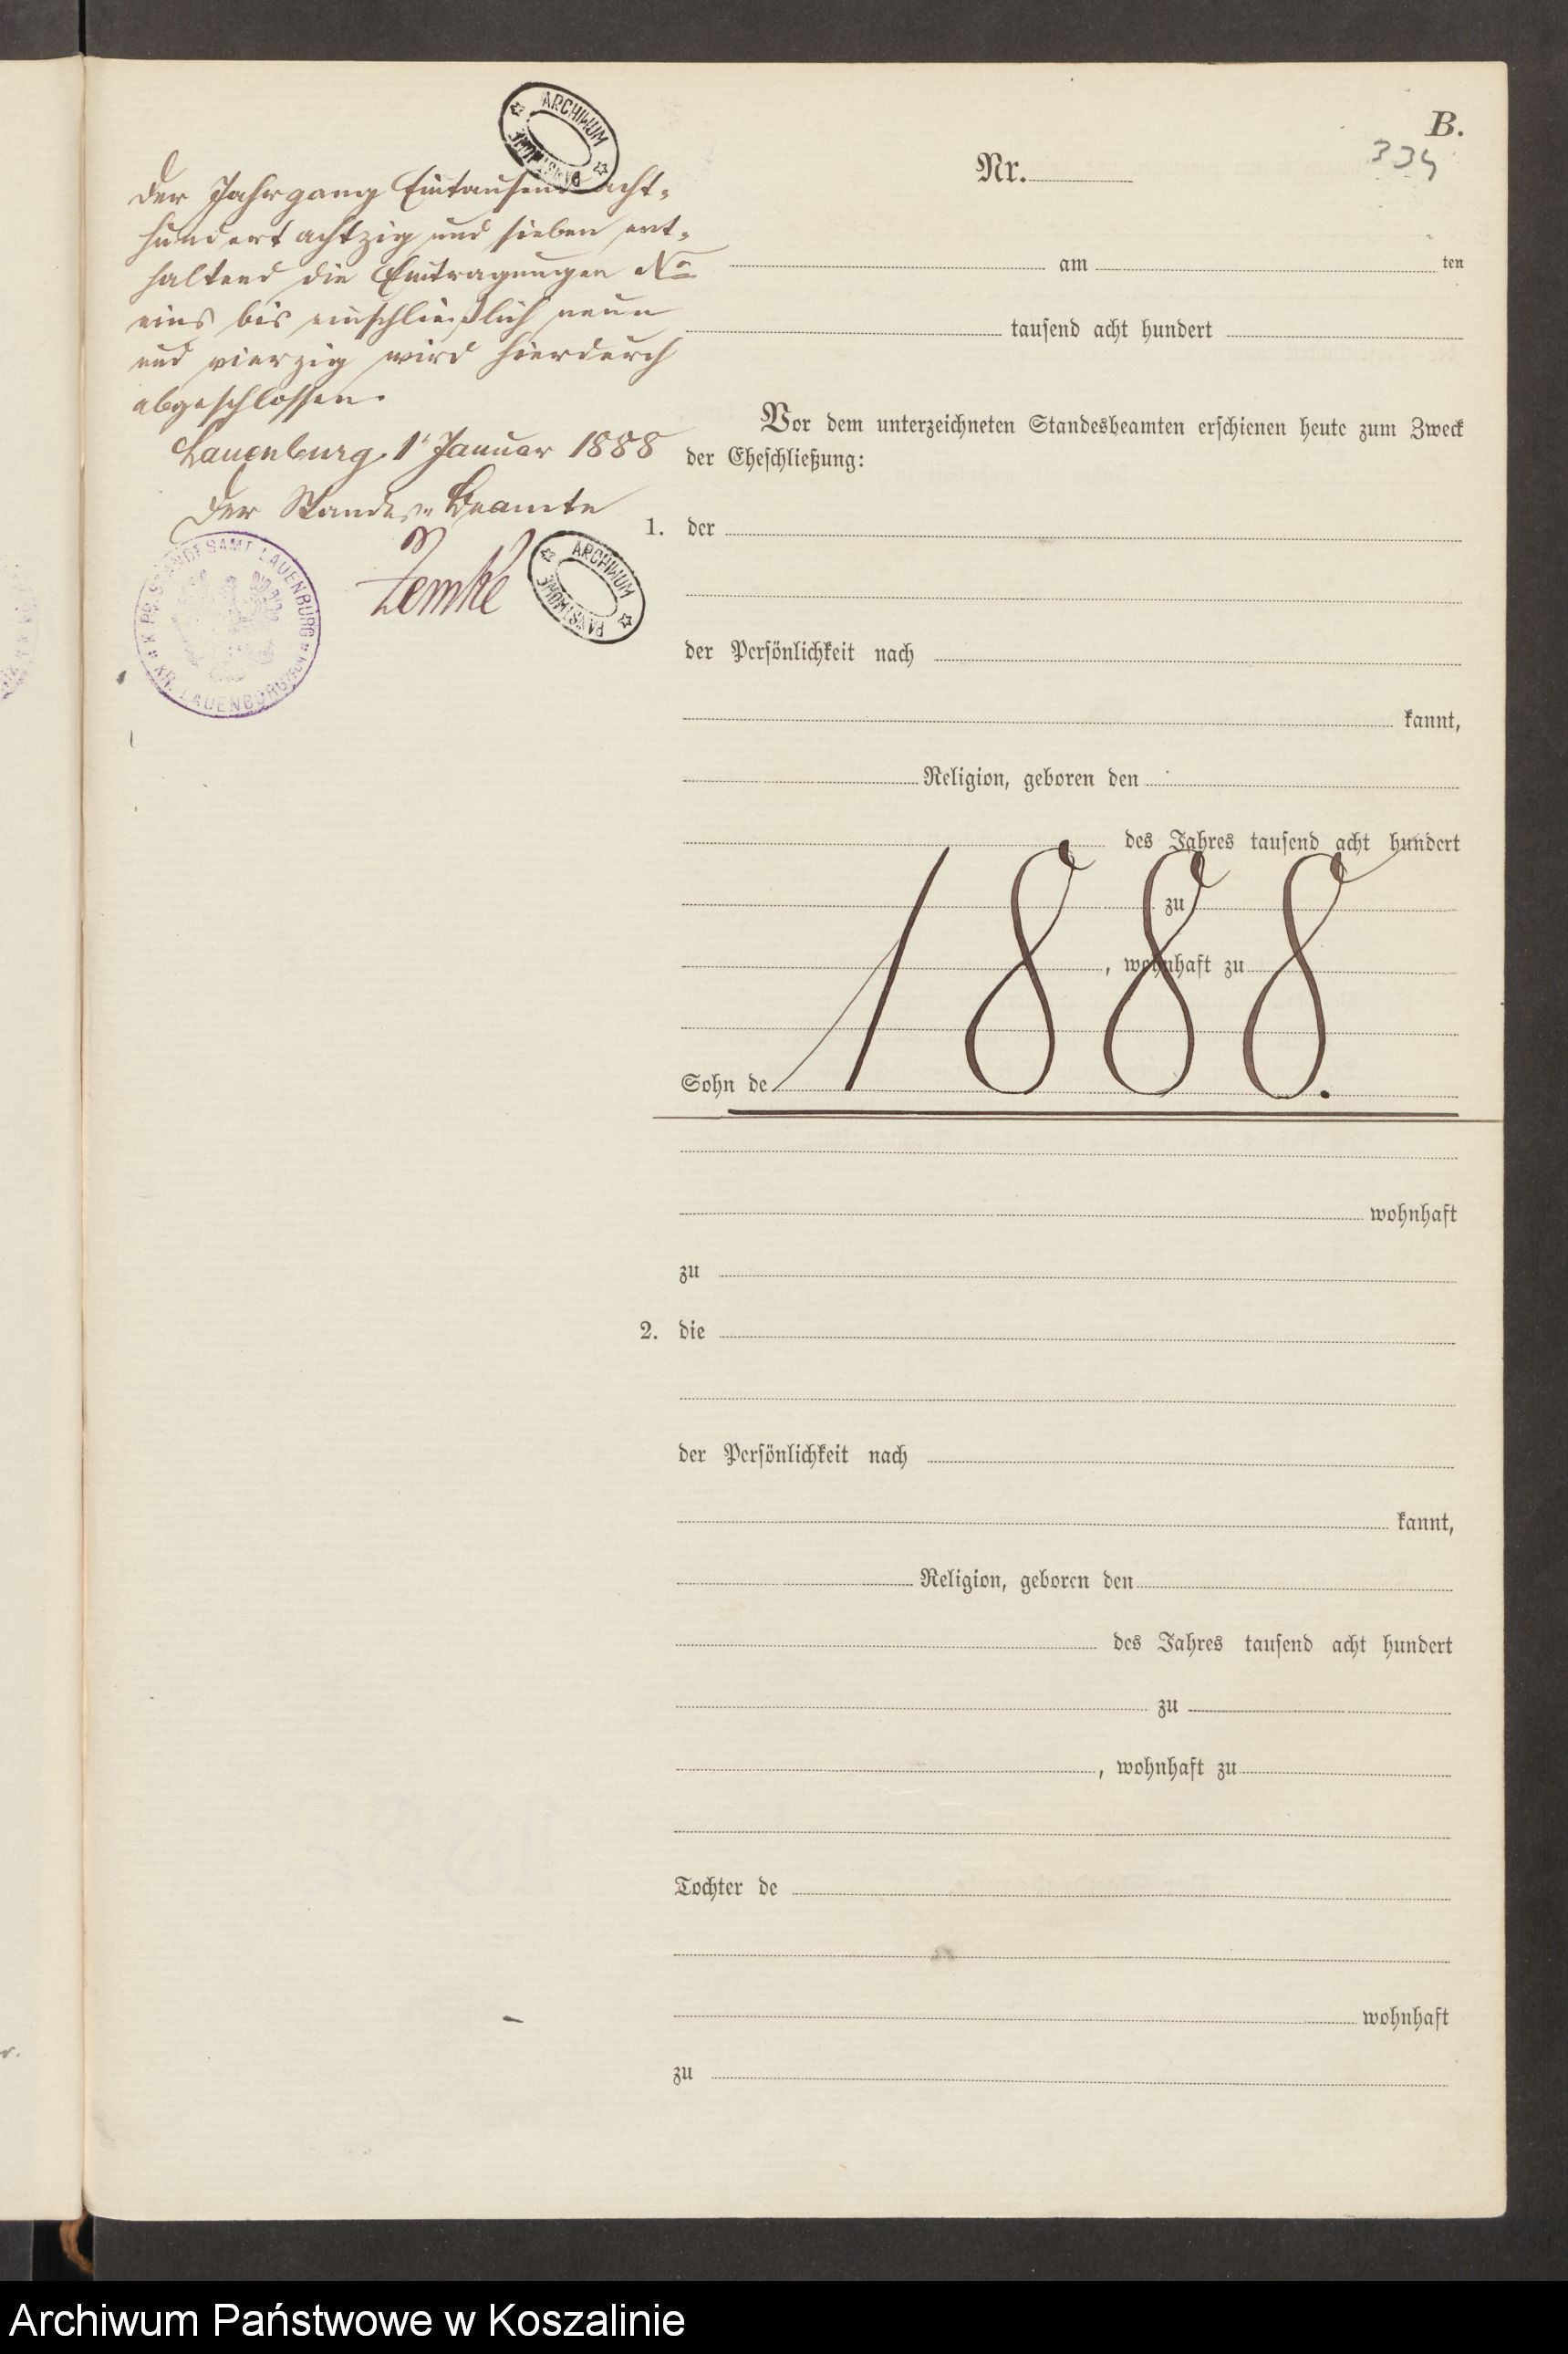 B.
334
Nr.
Der Jahrgang Eintausend acht-
hundert achtzig und sieben ent-
haltend die Eintragungen No
eins bis einschließlich neun
und vierzig wird hierdurch
abgeschlossen.
Lauenburg, 1t Januar 1888
Der Standes-Beamte
Zemke
ARCHIWUM
PAŃSTWOWE
ARCHIWUM
PAŃSTWOWE
K. PR. STANDESAMT LAUENBURG
KR. LAUENBURG
am ten
tausend acht hundert
Vor dem unterzeichneten Standesbeamten erschienen heute zum Zweck
der Eheschließung:
1. der
der Persönlichkeit nach
kannt,
Religion, geboren den
des Jahres tausend acht hundert
zu
, wohnhaft zu
1888.
Sohn de
wohnhaft
zu
2. die
der Persönlichkeit nach
kannt,
Religion, geboren den
des Jahres tausend acht hundert
zu
, wohnhaft zu
Tochter de
wohnhaft
zu
Archiwum Państwowe w Koszalinie